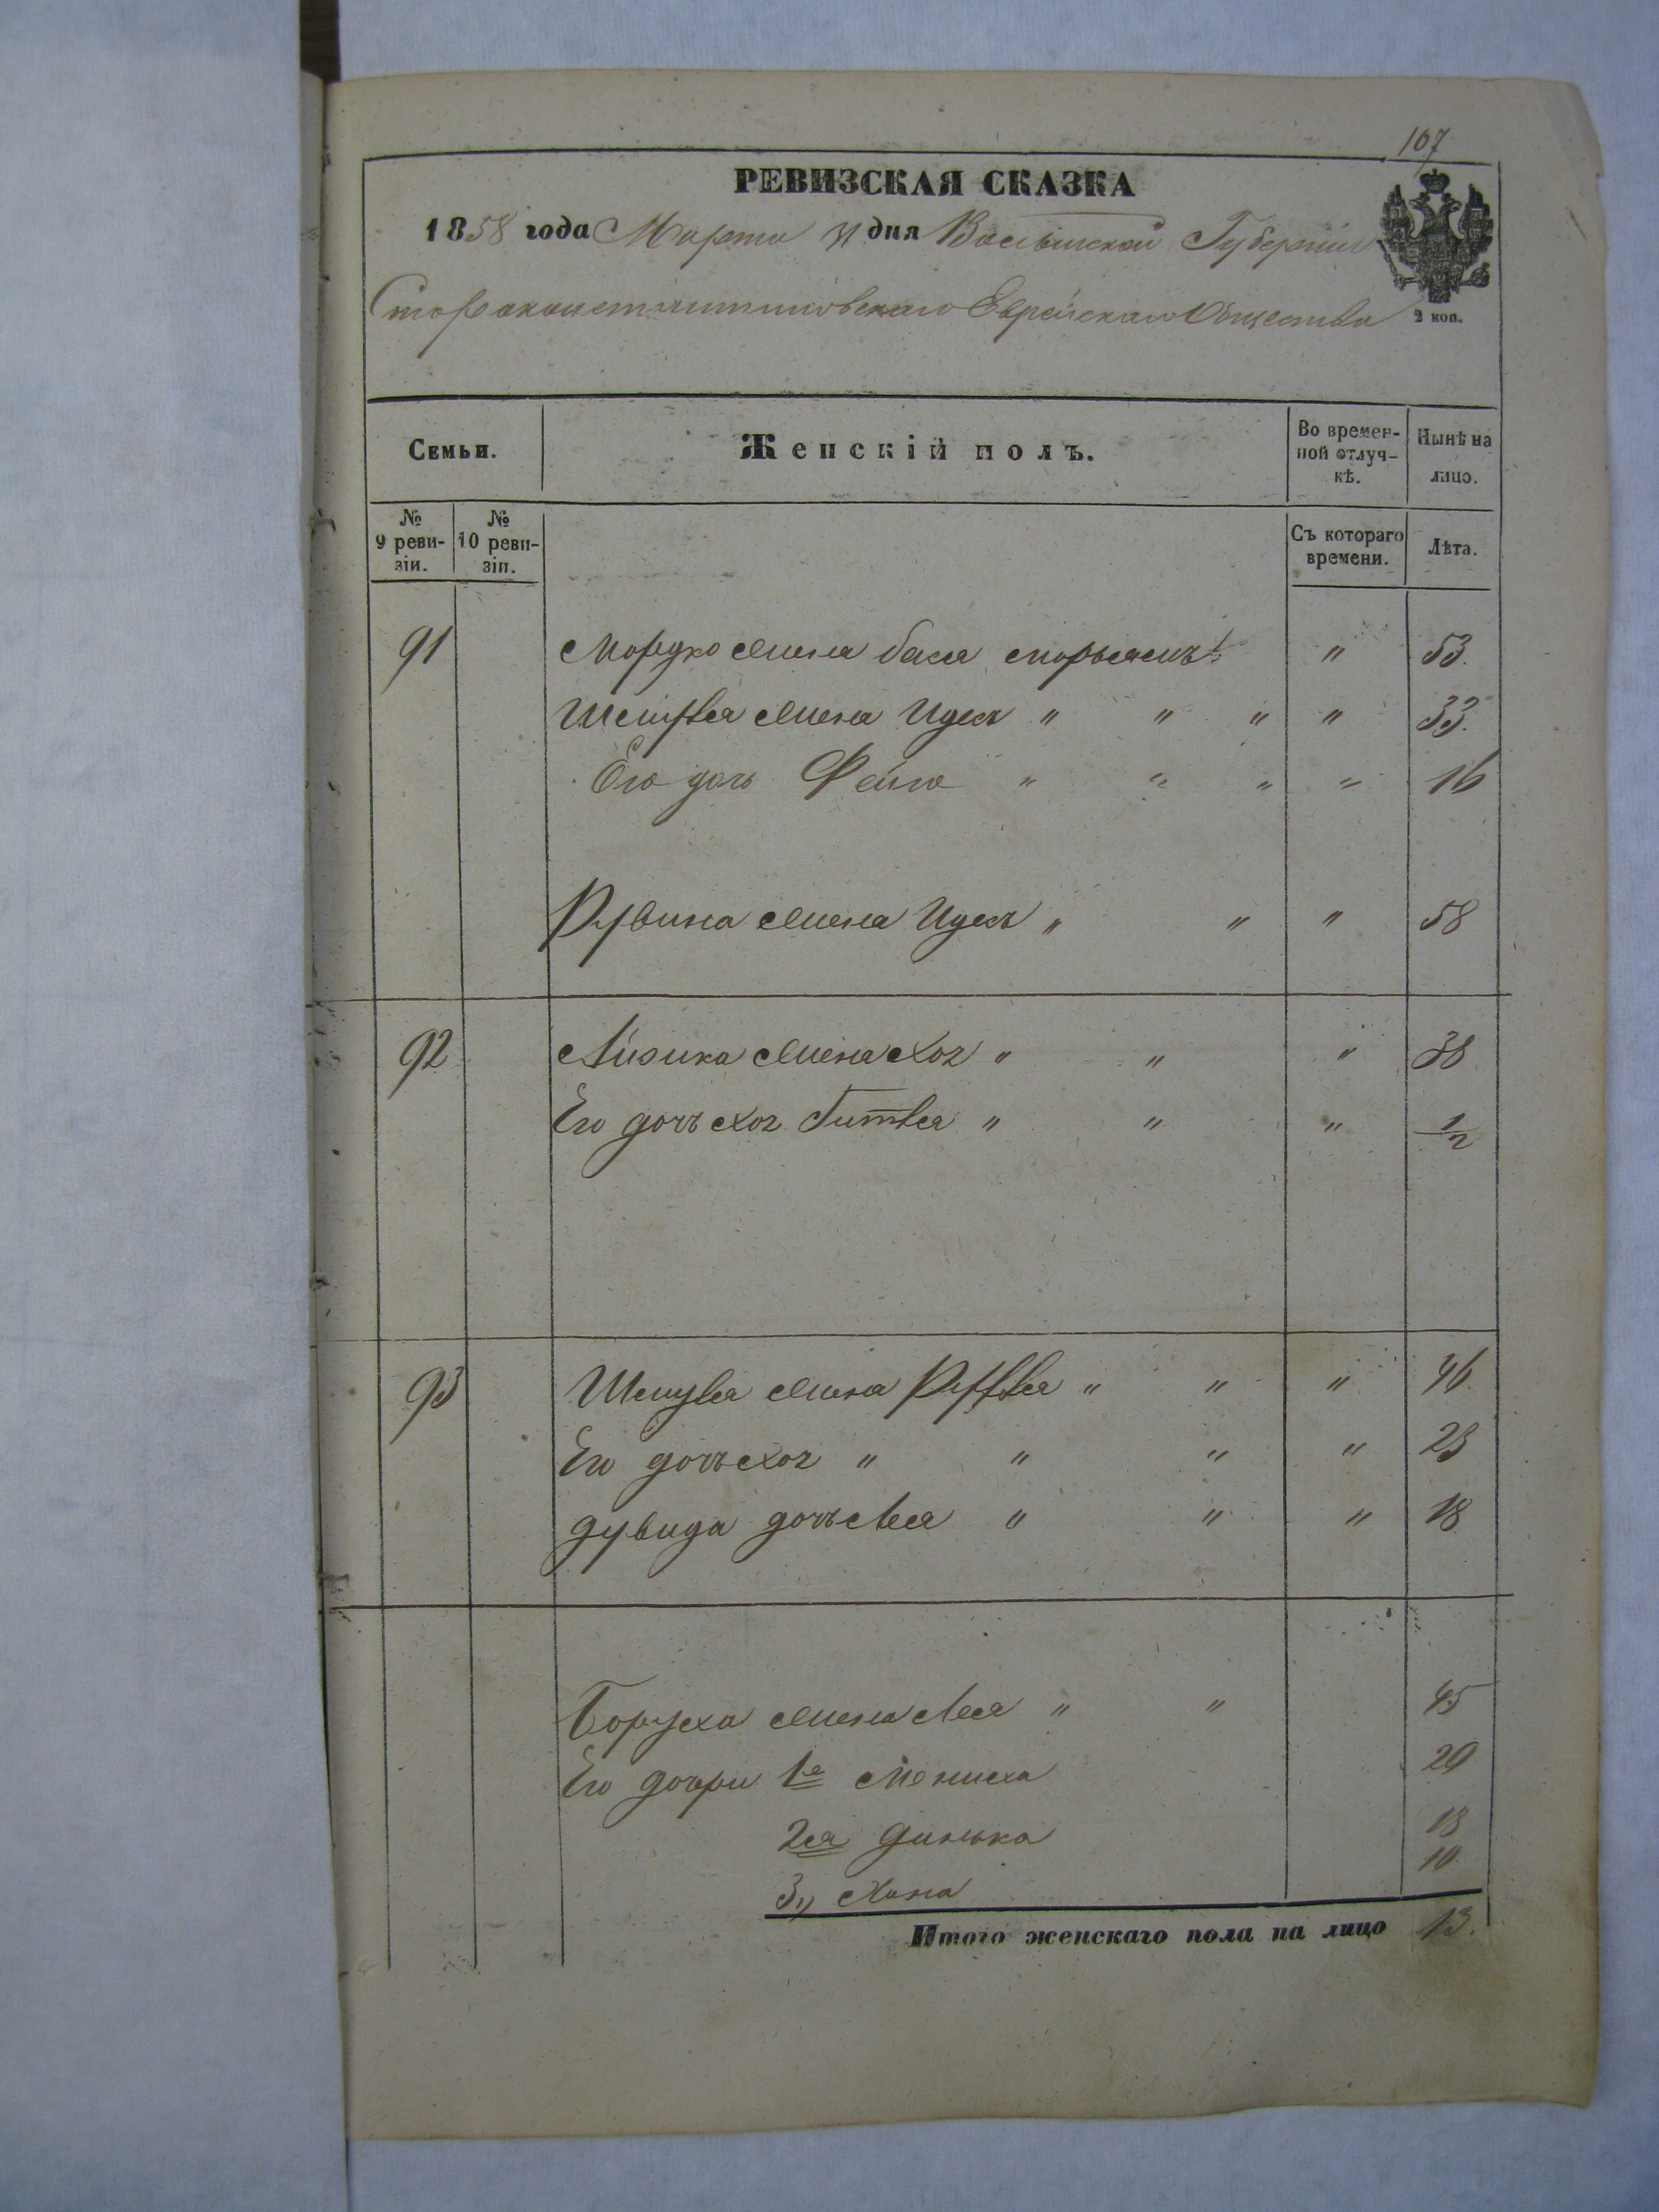 107
РЕВИЗСКАЯ СКАЗКА
1858 года Марта 31 дня Волынской Губернии
Староконстантиновскаго Еврейскаго Общества
2 коп.
Семьи.
Женскій полъ.
Во временной отлучкѣ.
Нынѣ на лицо.
№ 9 ревизіи.
№ 10 ревизіи.
Съ котораго времени.
Лѣта.
91 Мордко жена Бася " 53.
жена Идесъ " " " " 33.
Его дочь Фейга " " " " 16
Рувина жена Идесъ " " " 58
92 Айзика жена Хая " " " 38
Его дочь Хая Гитля " " " 1/2
93 Шмуля жена Рухля " " " 46
Его дочь Хая " " " " 23
Дувида дочь Лея " " " 18
Боруха жена Лея " " 45
Его дочери 1е 20
2ая Динька 18
3,, Хана 10
Итого женскаго пола на лицо 13.